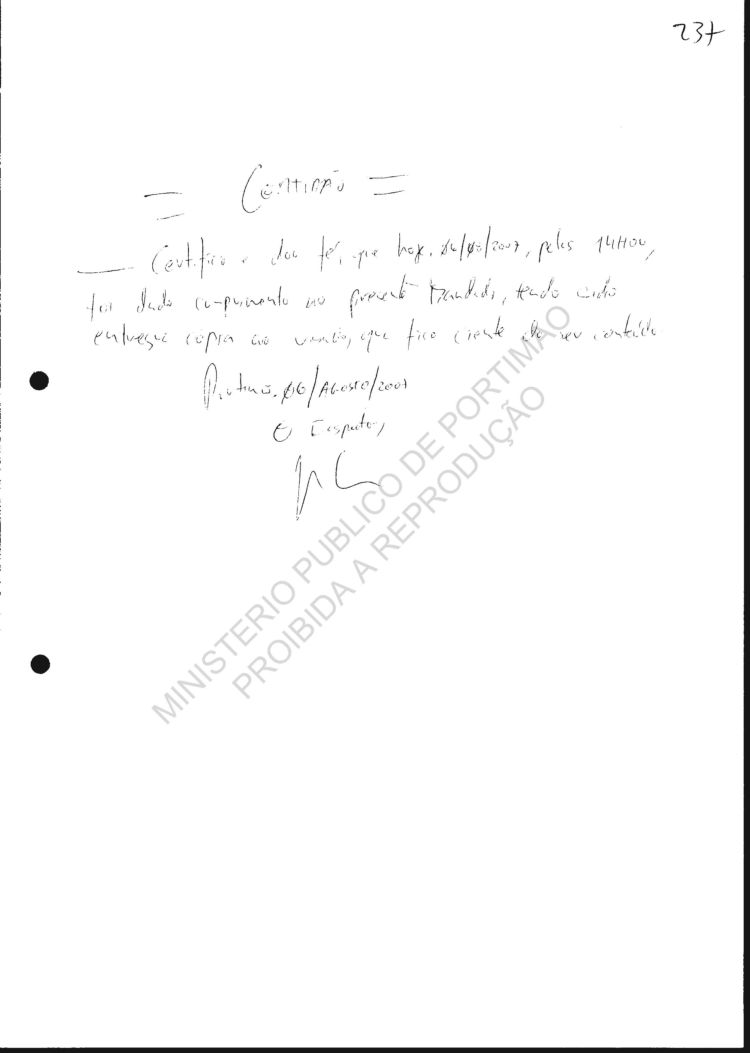 237
= CERTIDÃO =
Certifico e dou fé, que hoje, 06/08/2007, pelas 14H00,
foi dado cumprimento ao presente Mandado, tendo sido
entregue cópia ao visado, que fico ciente do seu conteúdo
Portimão, 06/AGOSTO/2007
O Inspector,
MINISTERIO PUBLICO DE PORTIMAO
PROIBIDA A REPRODUÇÃO